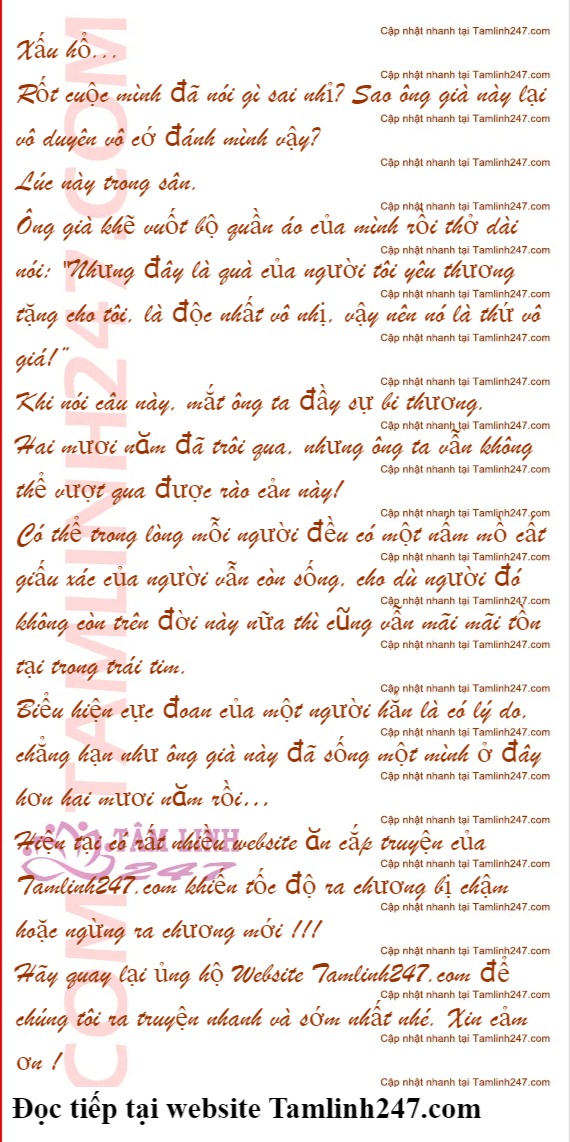 Cập nhật nhanh tại Tamlinh247.com
Xấu hổ...
Cập nhật nhanh tại Tamlinh247.com
Rốt cuộc mình đã nói gì sai nhỉ? Sao ông già này lại
Cập nhật nhanh tại Tamlinh247.com
vô duyên vô cớ đánh mình vậy?
Cập nhật nhanh tại Tamlinh247.com
Lúc này trong sân.
Cập nhật nhanh tại Tamlinh247.com
Ông già khẽ vuốt bộ quần áo của mình rồi thở dài
Cập nhật nhanh tại Tamlinh247.com
nói: "Nhưng đây là quà của người tôi yêu thương
Cập nhật nhanh tại Tamlinh247.com
tặng cho tôi, là độc nhất vô nhị, vậy nên nó là thứ vô
Cập nhật nhanh tại Tamlinh247.com
giá!"
Cập nhật nhanh tại Tamlinh247.com
Khi nói câu này, mắt ông ta đầy sự bi thương.
Cập nhật nhanh tại Tamlinh247.com
Hai mươi năm đã trôi qua, nhưng ông ta vẫn không
Cập nhật nhanh tại Tamlinh247.com
thể vượt qua được rào cản này!
Cập nhật nhanh tại Tamlinh247.com
Có thể trong lòng mỗi người đều có một nấm mồ cất
Cập nhật nhanh tại Tamlinh247.com
giấu xác của người vẫn còn sống, cho dù người đó
Cập nhật nhanh tại Tamlinh247.com
không còn trên đời này nữa thì cũng vẫn mãi mãi tồn
Cập nhật nhanh tại Tamlinh247.com
tại trong trái tim.
Cập nhật nhanh tại Tamlinh247.com
Biểu hiện cực đoan của một người hẳn là có lý do,
Cập nhật nhanh tại Tamlinh247.com
chẳng hạn như ông già này đã sống một mình ở đây
Cập nhật nhanh tại Tamlinh247.com
hơn hai mươi năm rồi...
Cập nhật nhanh tại Tamlinh247.com
Hiện tại có rất nhiều website ăn cắp truyện của
Cập nhật nhanh tại Tamlinh247.com
Tamlinh247.com khiến tốc độ ra chương bị chậm
Cập nhật nhanh tại Tamlinh247.com
hoặc ngừng ra chương mới !!!
Cập nhật nhanh tại Tamlinh247.com
Hãy quay lại ủng hộ Website Tamlinh247.com để
Cập nhật nhanh tại Tamlinh247.com
chúng tôi ra truyện nhanh và sớm nhất nhé. Xin cảm
Cập nhật nhanh tại Tamlinh247.com
ơn !
Cập nhật nhanh tại Tamlinh247.com
Đọc tiếp tại website Tamlinh247.com
TÂM LINH
247
COM TAMLINH247.COM